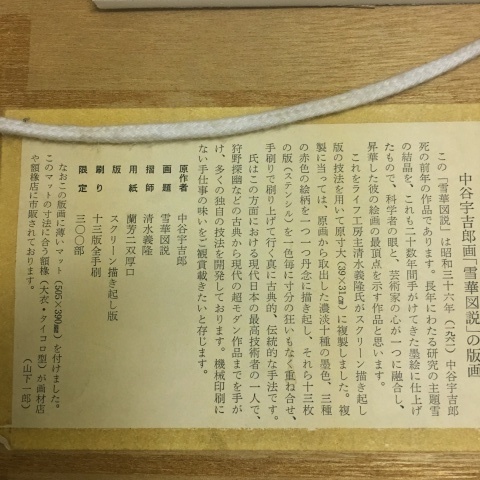 中谷宇吉郎画「雪華図説」の版画
この「雪華図説」は昭和三十六年（一九六一）中谷宇吉郎
死の前年の作品であります。長年にわたる研究の主題雪
の結晶を、これも二十数年間手がけてきた墨絵に仕上げ
たもので、科学者の眼と、芸術家の心が一つに融合し、
昇華した彼の絵画の最頂点を示す作品と思います。
これをライフ工房主清水義隆氏がスクリーン描き起し
版の技法を用いて原寸大（39×31㎝）に複製しました。複
製に当っては、原画から取出した濃淡十種の墨色、三種
の赤色の絵柄を一つ一つ丹念に描き起し、それら十三枚
の版（ステンシル）を一色毎に寸分の狂いもなく重ね合せ、
手刷りで刷り上げて行く真に古典的、伝統的な手法です。
氏はこの方面における現代日本の最高技術者の一人で、
狩野探幽などの古典から現代の超モダン作品までを手が
け、多くの独自の技法を開発しております。機械印刷に
ない手仕事の味いをご観賞戴きたいと存じます。
原作者 中谷宇吉郎
画題 雪華図説
摺師 清水義隆
用紙 蘭芳二双厚口
版 スクリーン描き起し版
刷り 十三版全手刷
限定 三〇〇部
なおこの版画に薄いマット（505×390㎜）を付けました。
このマットの寸法に合う額椽（大衣・タイコロ型）が画材店
や額椽店に市販されております。
（山下一郎）